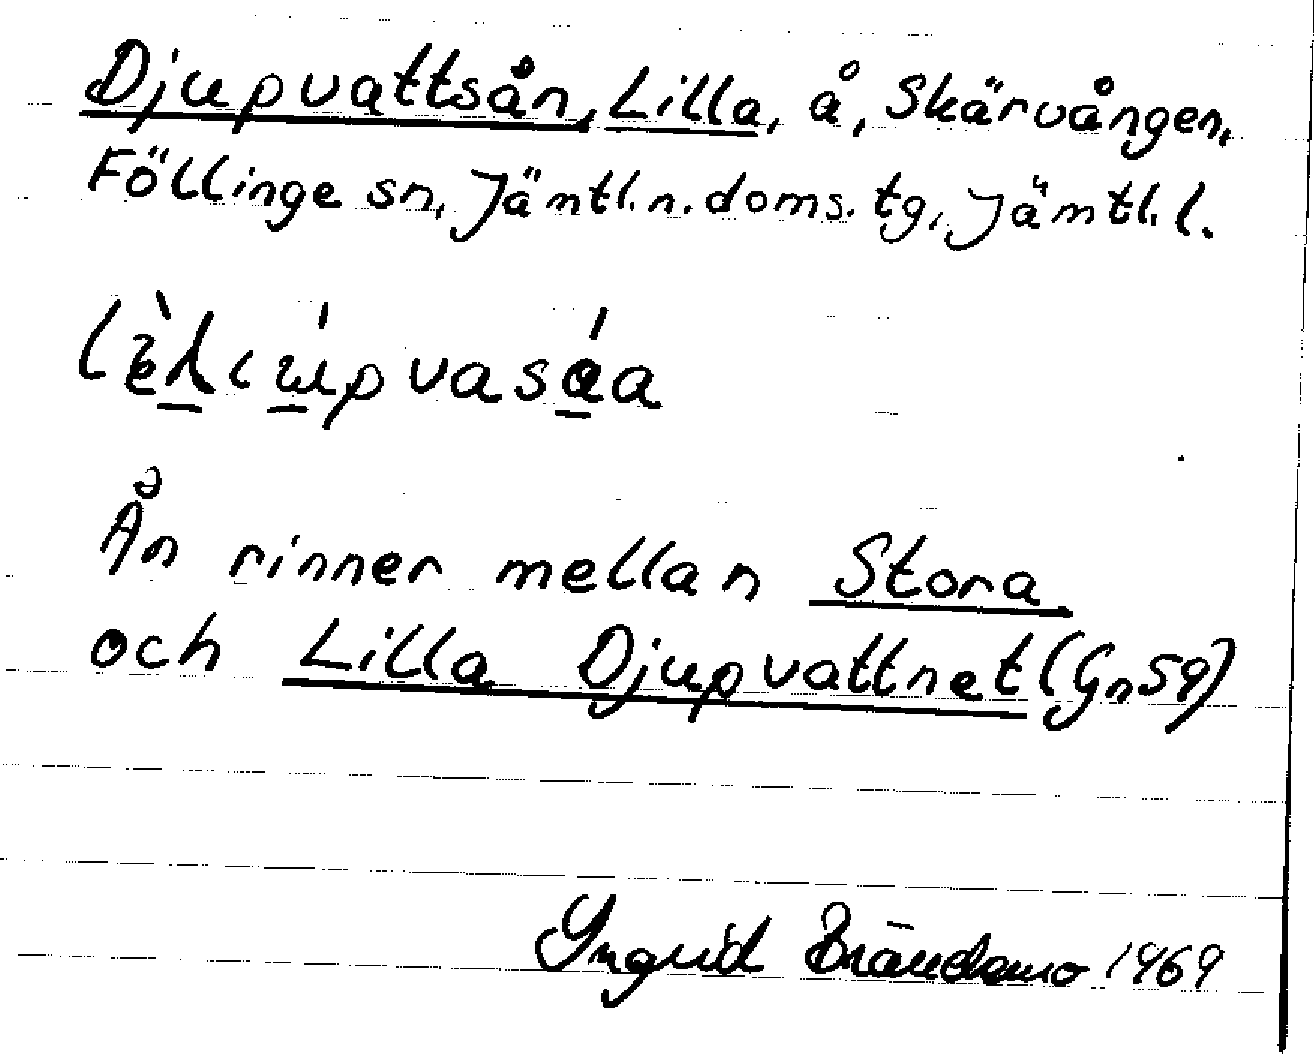 Djupvattsån, Lilla, å, Skärvången,
Föllinge sn, Jämtl. n. doms. tg, Jämtl. l.
Ån rinner mellan Stora
och Lilla Djupvattnet (Gn59)
Ingrid 1969